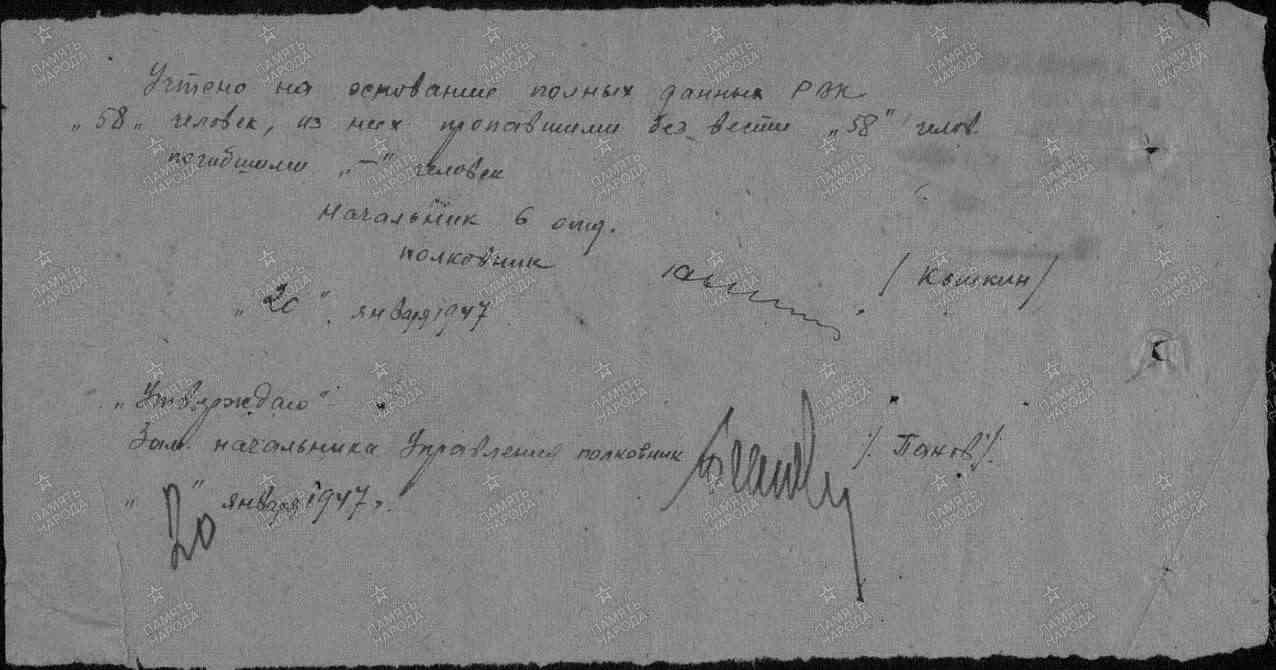 Учтено на основание полных данных РВК
„58„ человек, из них пропавшими без вести „58" челов.
погибшими „—" человек
Начальник 6 отд.
полковник /Кышкин/
„20" января 1947
„Утверждаю"
Зам. начальника Управления полковник /Панов/.
„20" января 1947г.
ПАМЯТЬ НАРОДА